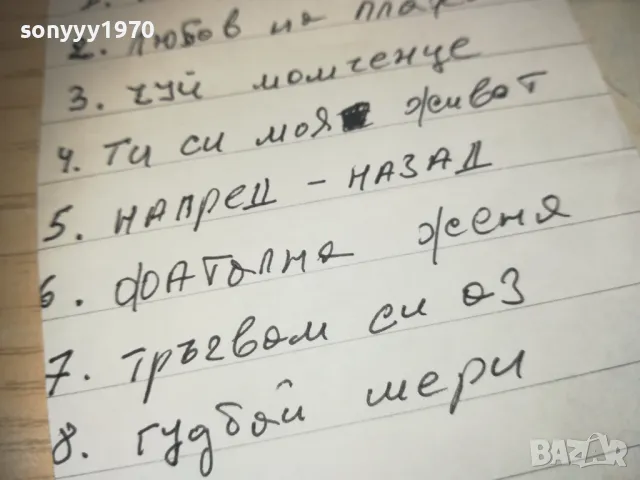 sonyyy1970
2. любов на плаж
3. чуй момченце
4. ти си моя живот
5. напред - назад
6. фатална женя
7. тръгвам си аз
8. гудбай мери
BAZAR